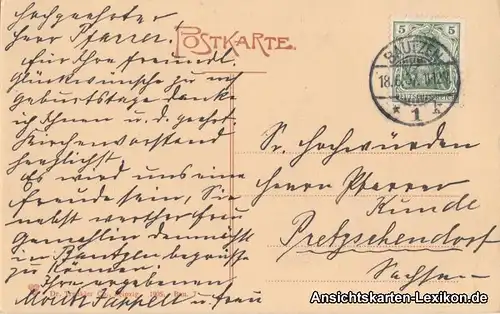 Hochgeehrter
Herr Pfarrer.
Für Ihre freundl.
Glückwünsche zu m
Geburtstage danke
ich Ihnen u. d. geehrt.
Kirchenvorstand
herzlichst.
Es wird uns eine
Freude sein, Sie
nebst werther Frau
Gemahlin demnächst
in Bautzen begrüßen
zu können.
Ihre ergebenen
Moritz Pappelt u. Frau
Dr. 1906
POSTKARTE.
5 5
BAUTZEN
18.6.
* 1 k
Sr. Hochwürden
Herrn Pfarrer
Kunde
Pretzschendorf
Sachsen
Ansichtskarten-Lexikon.de